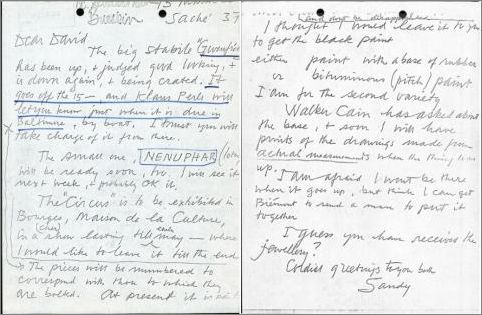 Saché 37
Dear David
The big stabile "Gwenfritz"
has been up, & judged good looking, &
is down again, & being crated. It
goes off the 15 — and Klaus Perls will
let you know just when it is due in
Baltimore, by boat. I trust you will
take charge of it from there.
The small one, NENUPHAR
will be ready soon, too. I will see it
next week, & probably OK it.
"The Circus" is to be exhibited in
Bourges, Maison de la Culture,
in a show lasting till early May — where
I would like to leave it till the end
& the pieces will be numbered to
correspond with those to which they
are bolted. At present it is
I thought I would leave it to you
to get the black paint
either paint with a base of rubber
or bituminous (pitch) paint
I am for the second variety
Walker Cain has asked about
the base, & soon I will have
prints of the drawings made from
actual measurements when the thing is
up.
I am afraid I wont be there
when it goes up, but think I can get
Biémont to send a man to put it
together
I guess you have received the
jewellery?
Cordial greetings to you both
Sandy